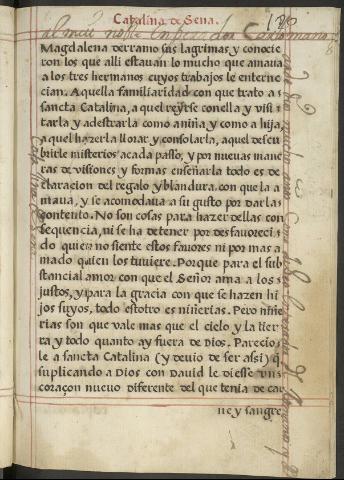 Catalina de Sena.
Magdalena derramo sus lagrimas y conocie
ron los que alli estavan lo mucho que amava
a los tres hermanos cuyos trabajos le enterne
cian. Aquella familiaridad con que trato a s
sancta Catalina, a quel reyrse con ella y visi
tarla y adestrarla como a niña y como a hija,
a quel hazerla llorar y consolarla, aquel descu
birle misterios a cada passo, y por nuevas mane
ras de visiones y formas enseñarla todo es de
claracion del regalo y blandura con que la a
mava, y se acomodava a su gusto por darlas
contento. No son cosas para hazer dellas con
sequencia, ni se ha de tener por desfavoreci
do quien no siente estos favores ni por mas a
mado quien los tuviere. Porque para el sub
stancial amor con que el Señor ama a los
justos, y para la gracia con que se hazen hi
jos suyos, todo estotro es niñerias. Pero niñe
rias son que vale mas que el cielo y la tier
ra y todo quanto ay fuera de Dios. Parecio
le a sancta Catalina (y devio de ser assi) q
suplicando a Dios con David le diesse un
coraçon nuevo diferente del que tenia de car
ne y sangre